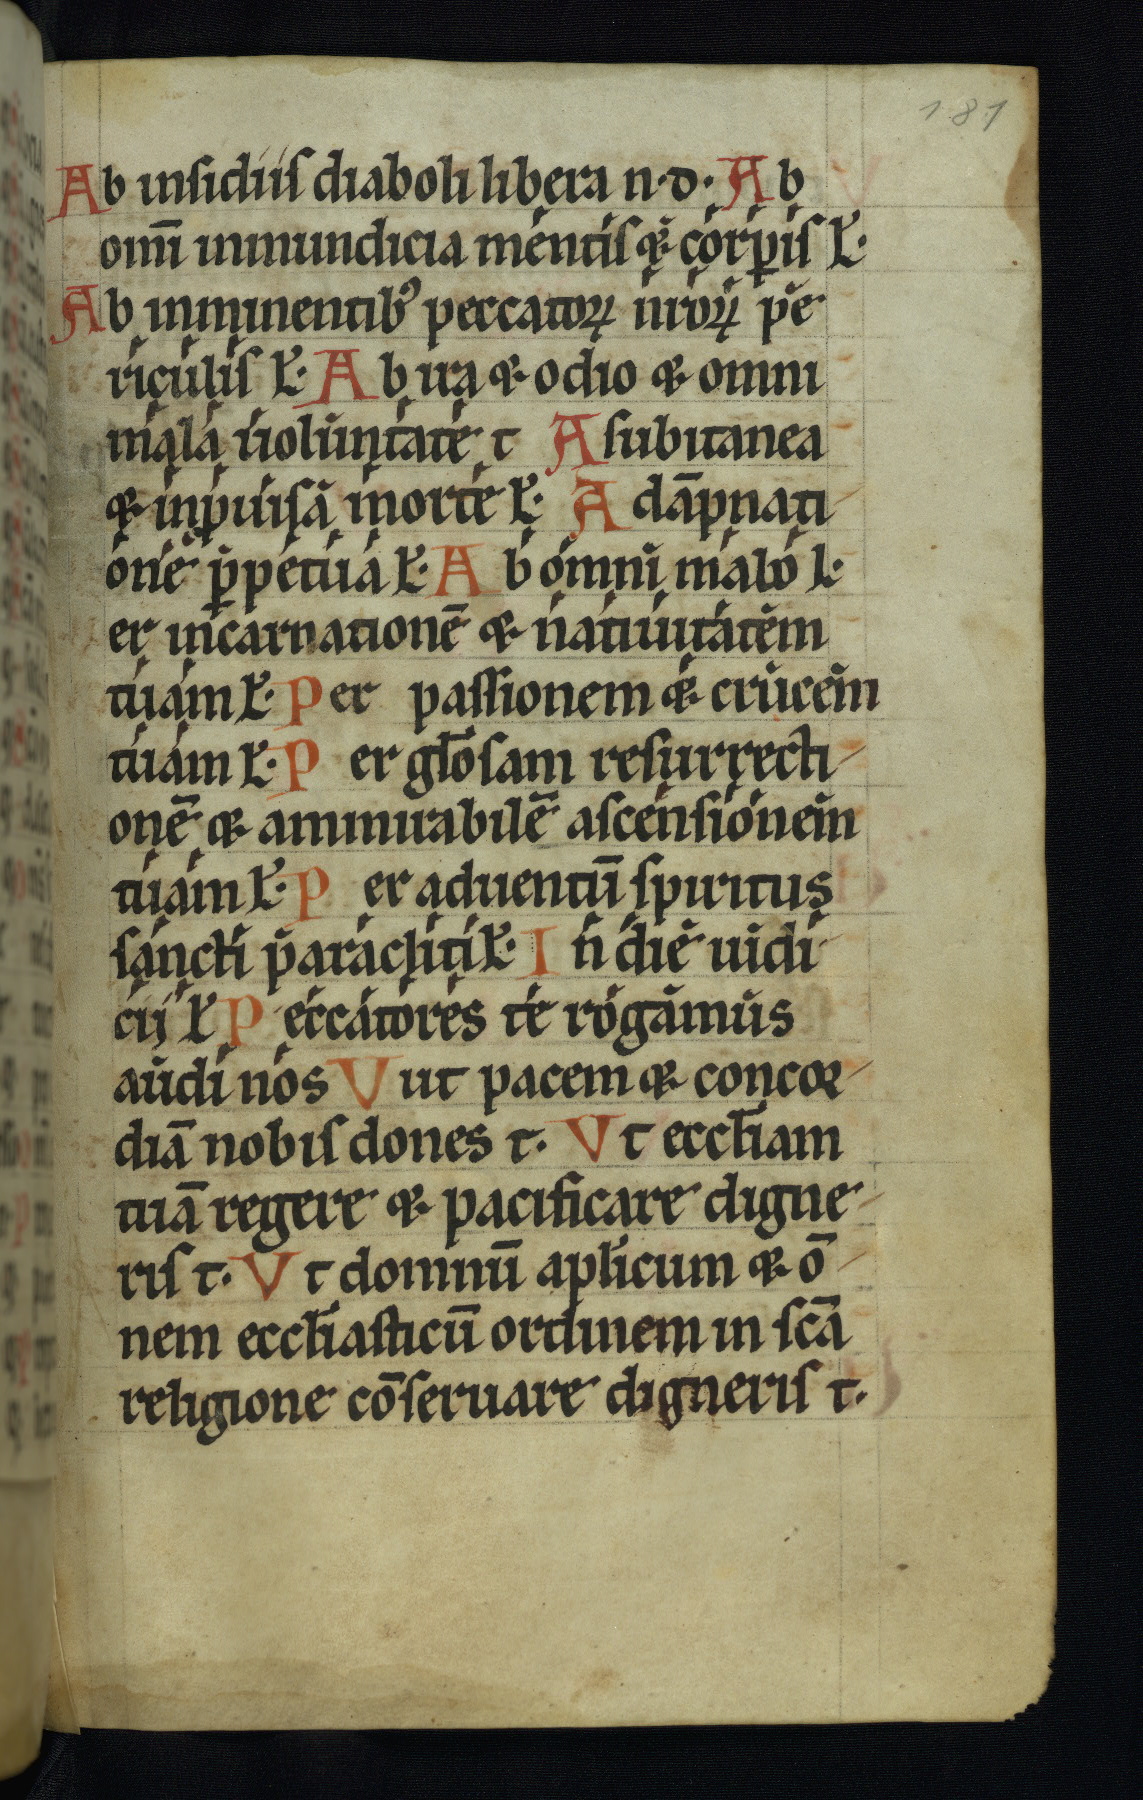 181
Ab insidiis diaboli libera n.d. Ab
om̄i inmundicia mentis ⁊ corꝑis ł.
Ab inminentibꝰ peccatoꝝ nr̄oꝝ pe
riculis ł. Ab ira ⁊ odio ⁊ omni
mala uoluntate t A subitanea
⁊ inp̄uisā morte ł. A dāpnati
one p̄petua ł. Ab omni malo ł.
er incarnationē ⁊ natiuitatem
tuam ł. Per passionem ⁊ crucem
tuam ł. Per gl̄osam resurrecti
onē ⁊ ammirabilē ascensionem
tuam ł. Per aduentū spiritus
sancti paracliti ł. In die iudi
cii ł Peccatores te rogamus
audi nos Vut pacem ⁊ concor
diā nobis dones t. Vt eccl̄iam
tuā regere ⁊ pacificare digne
ris t. Vt domnū apl̄icum ⁊ ō
nem eccl̄iasticū ordinem in sc̄a
religione cōseruare digneris t.